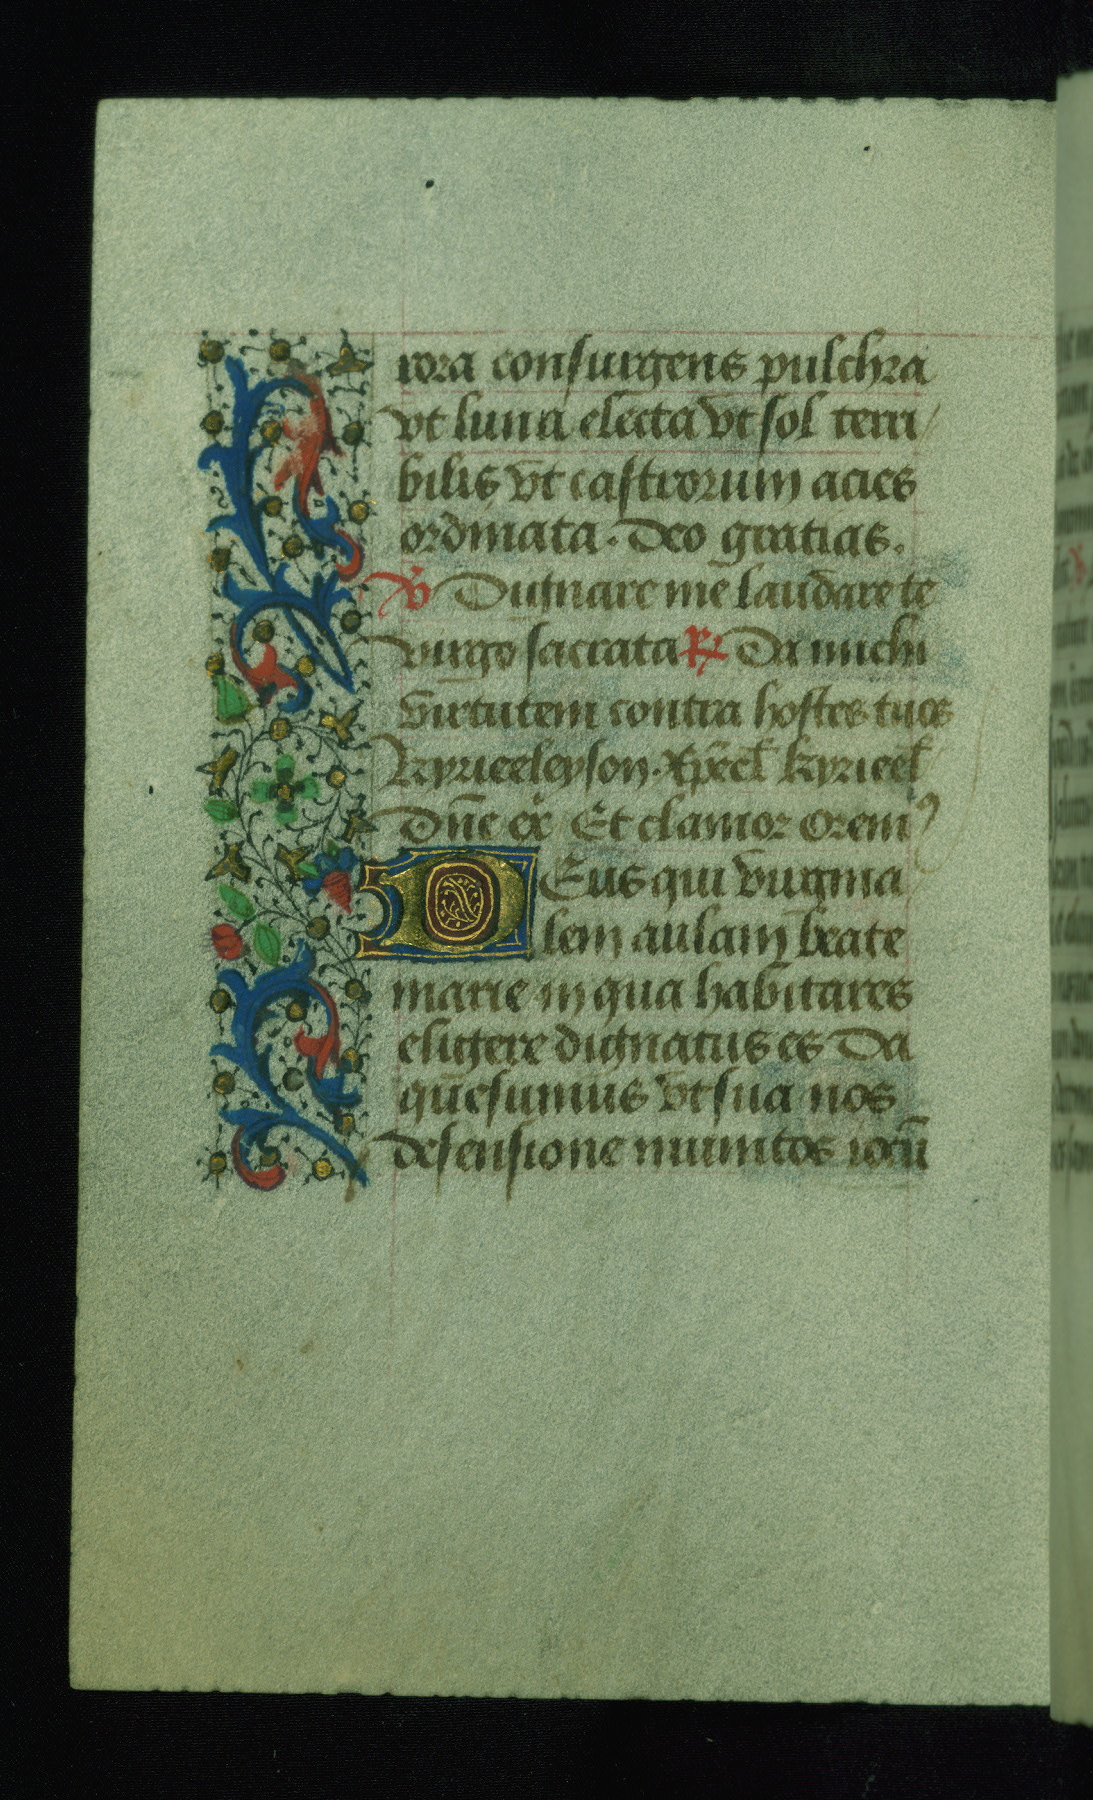 rora consurgens pulchra
vt luna electa vt sol terri
bilis vt castrorum acies
ordinata. Deo gratias.
V Dignare me laudare te
virgo sacrata R Da michi
virtutem contra hostes tuos
Kyrieeleyson. Xp̄eel̄ kyrieel̄
Dn̄e ex̄ Et clamor Oremꝰ
Deus qui virgina
lem aulam beate
marie in qua habitares
eligere dignatus es Da
quesumus vt sua nos
defensione munitos iocū